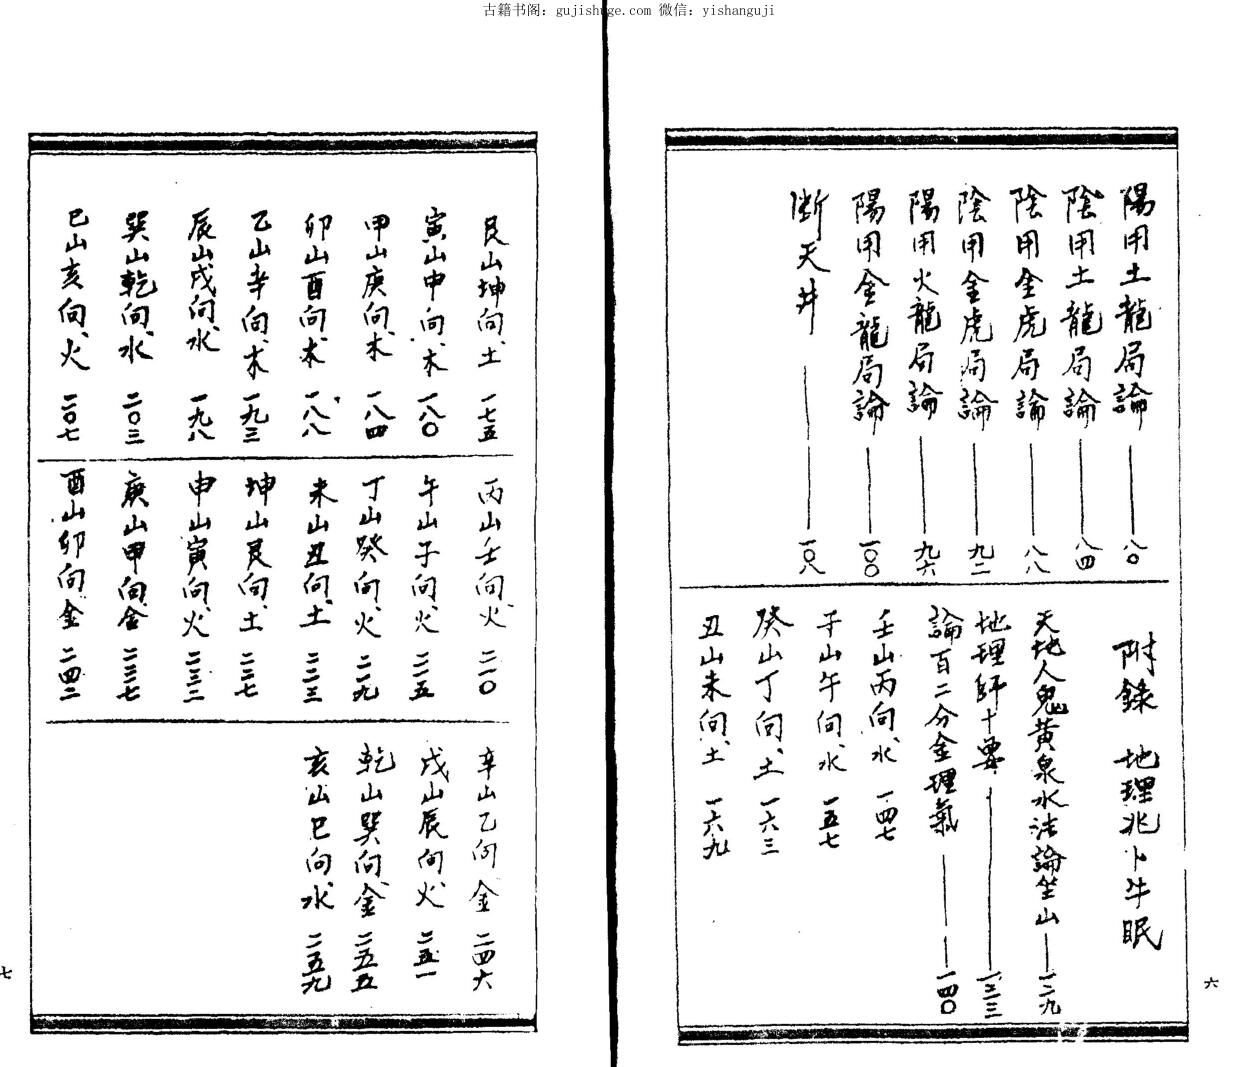 古籍书阁：gujishuge.com 微信：yishanguji
陽用土龍局論——八〇
陰用土龍局論——八四
陰用金虎局論——八八
陰用金虎局論——九二
陽用火龍局論——九六
陽用金龍局論——一〇〇
斷天井——一〇八
附錄 地理兆卜牛眠
天地人鬼黃泉水法論坐山——一二九
地理師十要——一三三
論百二分金理氣——一四〇
壬山丙向、水 一四七
子山午向、水 一五七
癸山丁向、土 一六三
丑山未向、土 一六九
六
艮山坤向、土 一七五
寅山申向、木 一八〇
甲山庚向、木 一八四
卯山酉向、木 一八八
乙山辛向、木 一九三
辰山戌向、水 一九八
巽山乾向、水 二〇三
巳山亥向、火 二〇七
丙山壬向、火 二一〇
午山子向、火 二一五
丁山癸向、火 二一九
未山丑向、土 二二三
坤山艮向、土 二二七
申山寅向、火 二三二
庚山甲向、金 二三七
酉山卯向、金 二四二
辛山乙向、金 二四六
戌山辰向、火 二五一
乾山巽向、金 二五五
亥山巳向、水 二五九
七